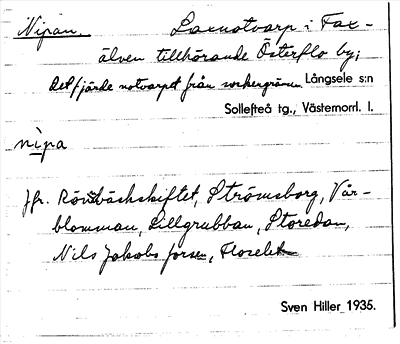 Nipan. Laxnotvarp i Fax-
älven tillhörande Österflo by;
Det fjärde notvarpet från sockengränsen Långsele s:n
Sollefteå tg., Västernorrl. l.
nipa
Jfr. Rönnbäckskiftet, Strömsborg, Vår-
blomman, Lillgrubban, Storedan,
Nils Jakobs forsen,
Sven Hiller 1935.